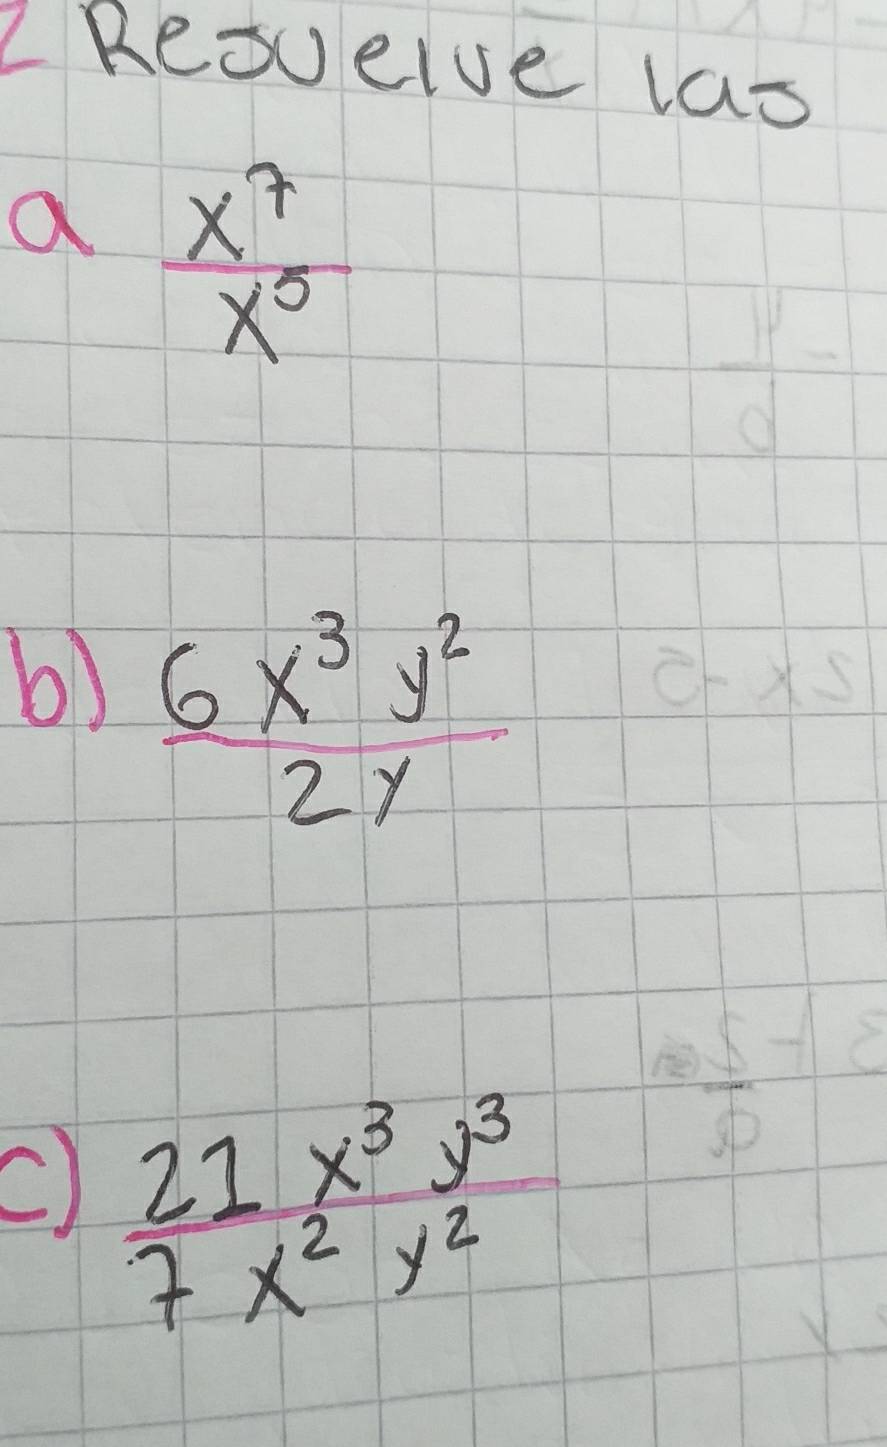 2 Resuelve las
a x⁷
x⁵
b) 6x³ y²
2y
c) 21 x³ y³
7 x² y²